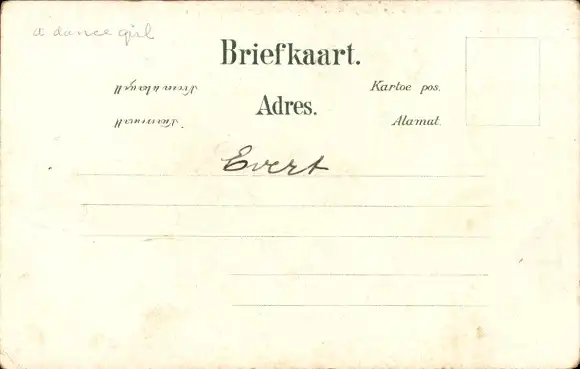 a dance girl
Briefkaart.
Kartoe pos.
Adres.
Alamat.
Evert